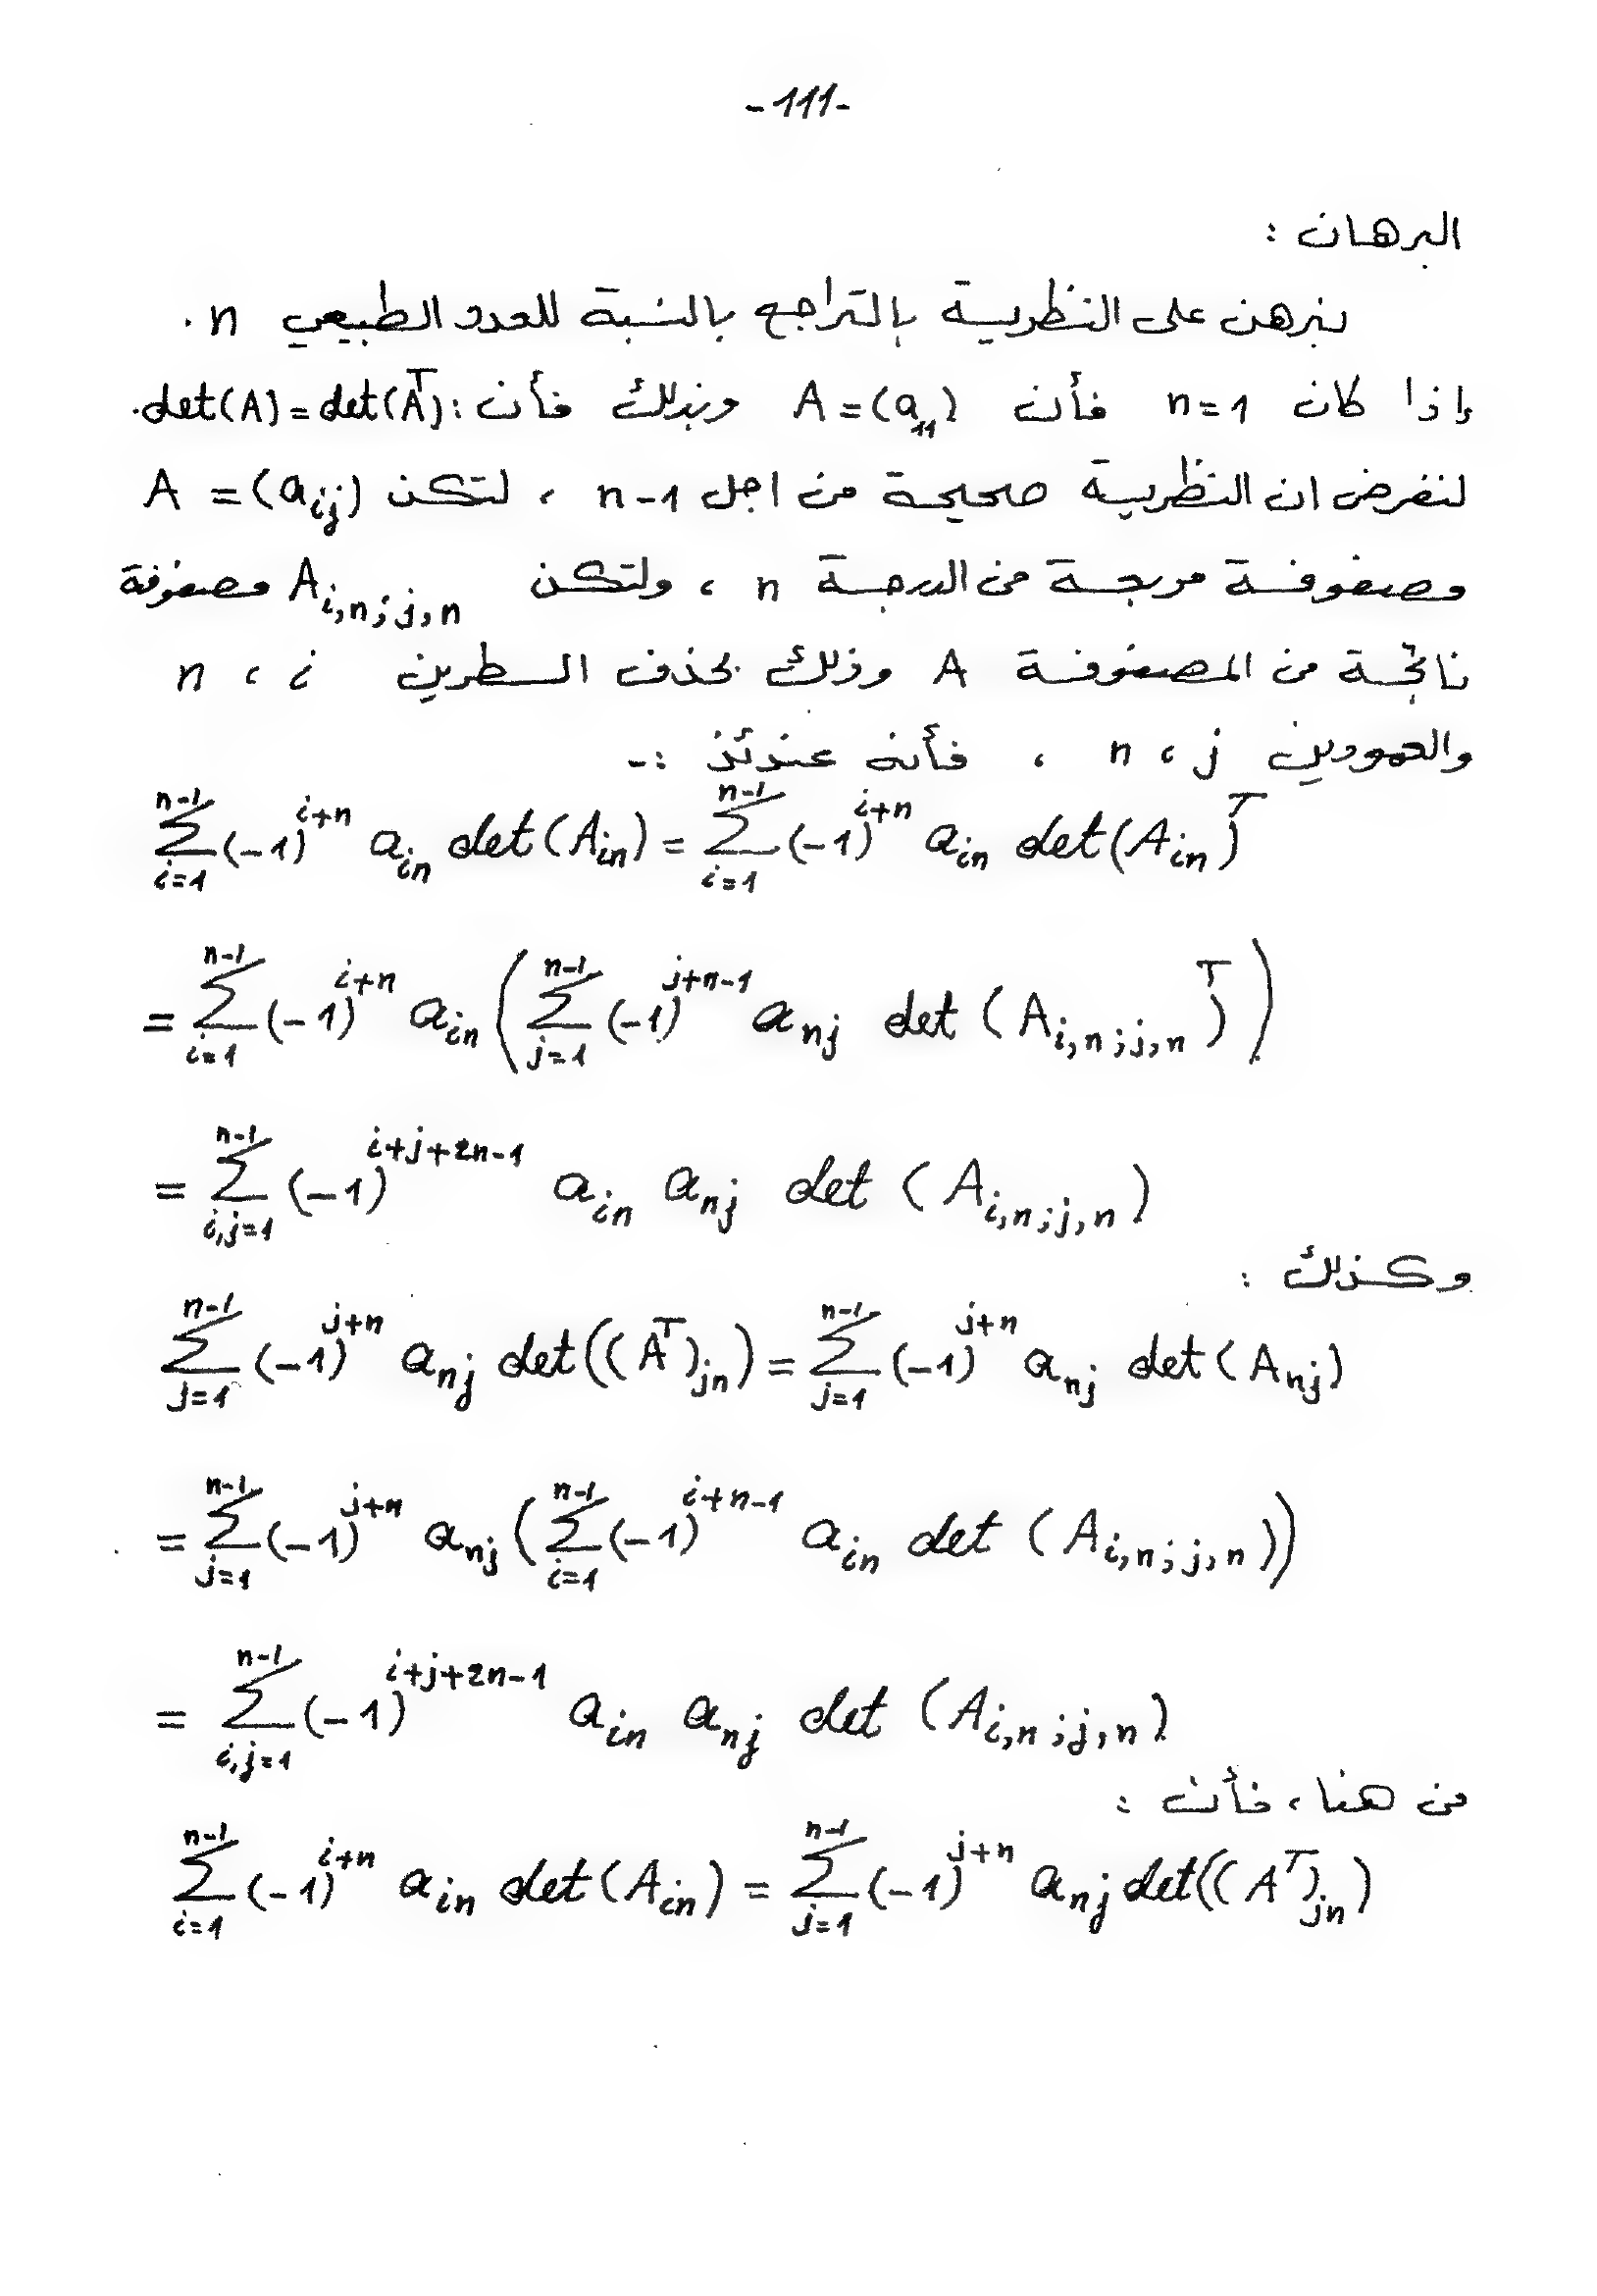 -111-
البرهان :
نبرهن على النظرية بالتراجع بالنسبة للعدد الطبيعي n .
إذا كان n=1 فأن A=(a₁₁) وبذلك فأن : det(A)=det(A^T).
لنفرض ان النظرية صحيحة من اجل n-1 ، لتكن A=(a_{ij})
مصفوفة مربعة من الدرجة n ، ولتكن A_{i,n;j,n} مصفوفة
ناتجة من المصفوفة A وذلك بحذف السطرين i ، n
والعمودين j ، n ، فأنه عندئذ :-
\sum_{i=1}^{n-1} (-1)^{i+n} a_{in} det(A_{in}) = \sum_{i=1}^{n-1} (-1)^{i+n} a_{in} det(A_{in})^T
= \sum_{i=1}^{n-1} (-1)^{i+n} a_{in} ( \sum_{j=1}^{n-1} (-1)^{j+n-1} a_{nj} det (A_{i,n;j,n})^T )
= \sum_{i,j=1}^{n-1} (-1)^{i+j+2n-1} a_{in} a_{nj} det (A_{i,n;j,n})
وكذلك :
\sum_{j=1}^{n-1} (-1)^{j+n} a_{nj} det((A^T)_{jn}) = \sum_{j=1}^{n-1} (-1)^{j+n} a_{nj} det(A_{nj})
= \sum_{j=1}^{n-1} (-1)^{j+n} a_{nj} ( \sum_{i=1}^{n-1} (-1)^{i+n-1} a_{in} det (A_{i,n;j,n}))
= \sum_{i,j=1}^{n-1} (-1)^{i+j+2n-1} a_{in} a_{nj} det (A_{i,n;j,n})
من هنا ، فأن :
\sum_{i=1}^{n-1} (-1)^{i+n} a_{in} det(A_{in}) = \sum_{j=1}^{n-1} (-1)^{j+n} a_{nj} det((A^T)_{jn})